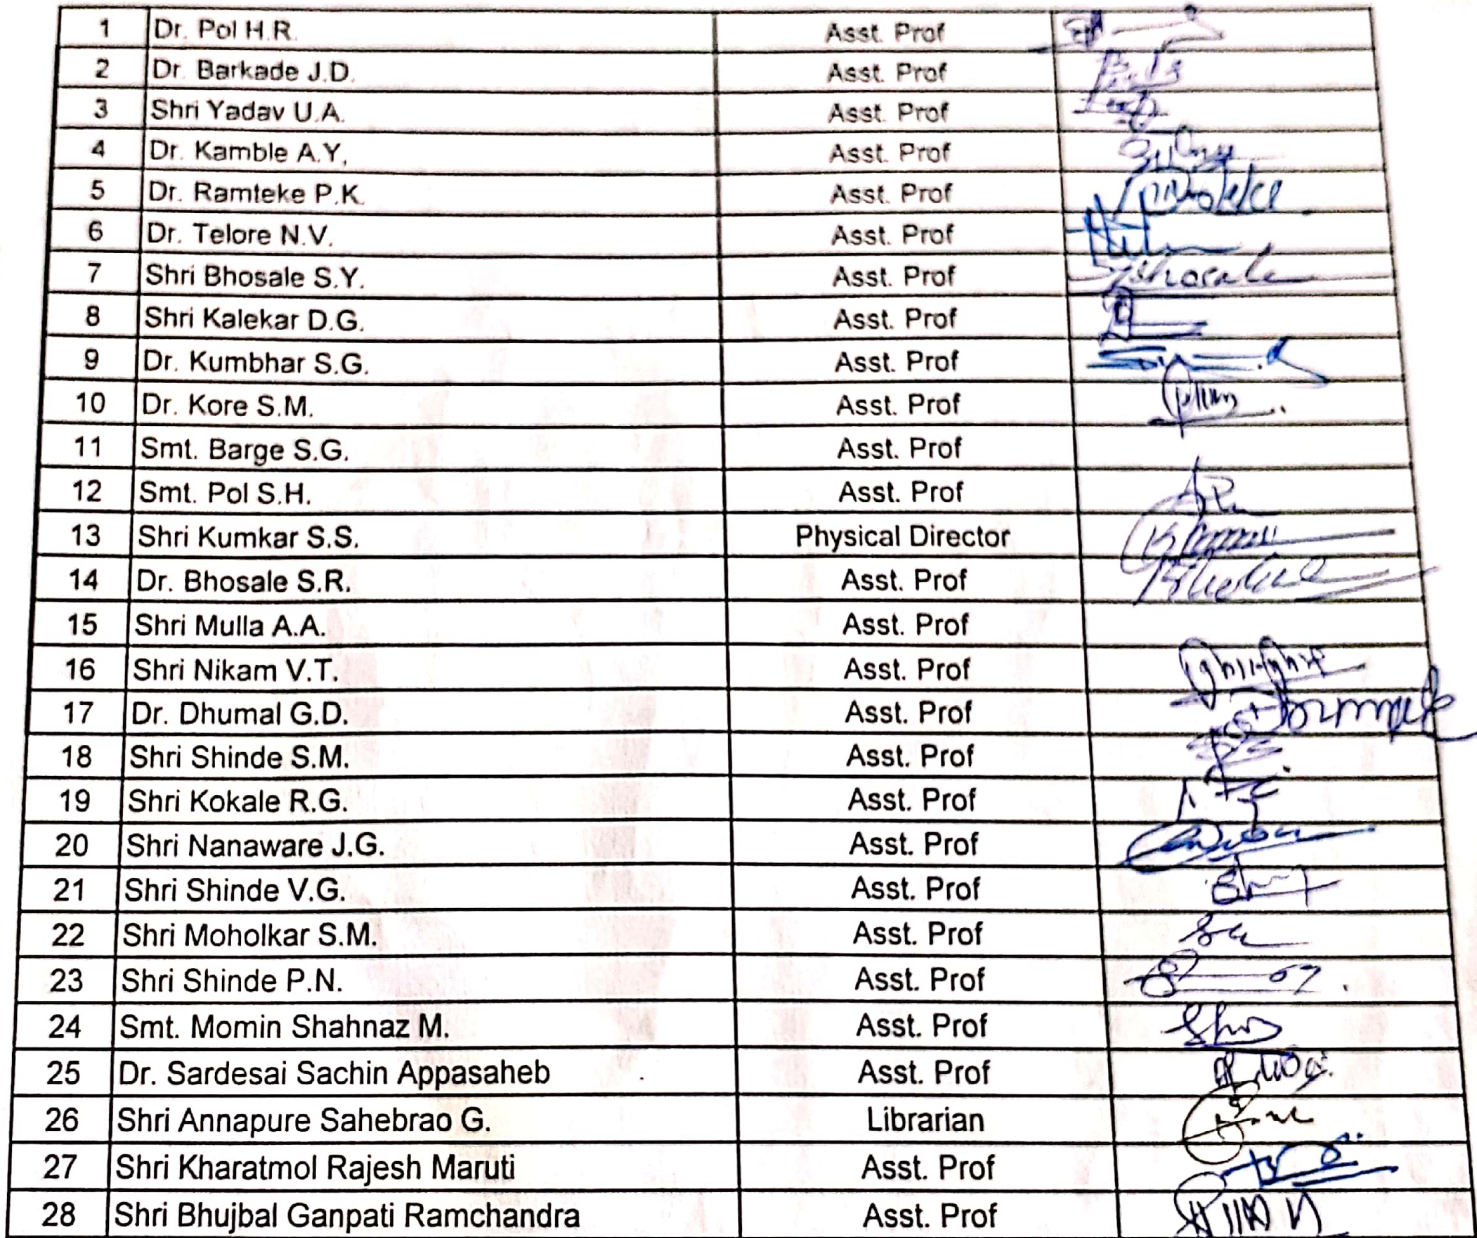 1 Dr. Pol H.R. Asst. Prof
2 Dr. Barkade J.D. Asst. Prof
3 Shri Yadav U.A. Asst. Prof
4 Dr. Kamble A.Y, Asst. Prof
5 Dr. Ramteke P.K. Asst. Prof
6 Dr. Telore N.V. Asst. Prof
7 Shri Bhosale S.Y. Asst. Prof
8 Shri Kalekar D.G. Asst. Prof
9 Dr. Kumbhar S.G. Asst. Prof
10 Dr. Kore S.M. Asst. Prof
11 Smt. Barge S.G. Asst. Prof
12 Smt. Pol S.H. Asst. Prof
13 Shri Kumkar S.S. Physical Director
14 Dr. Bhosale S.R. Asst. Prof
15 Shri Mulla A.A. Asst. Prof
16 Shri Nikam V.T. Asst. Prof
17 Dr. Dhumal G.D. Asst. Prof
18 Shri Shinde S.M. Asst. Prof
19 Shri Kokale R.G. Asst. Prof
20 Shri Nanaware J.G. Asst. Prof
21 Shri Shinde V.G. Asst. Prof
22 Shri Moholkar S.M. Asst. Prof
23 Shri Shinde P.N. Asst. Prof
24 Smt. Momin Shahnaz M. Asst. Prof
25 Dr. Sardesai Sachin Appasaheb Asst. Prof
26 Shri Annapure Sahebrao G. Librarian
27 Shri Kharatmol Rajesh Maruti Asst. Prof
28 Shri Bhujbal Ganpati Ramchandra Asst. Prof